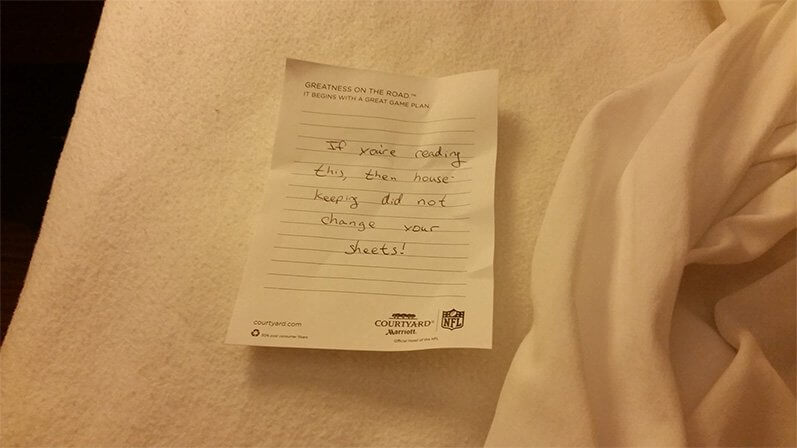 GREATNESS ON THE ROAD.™
IT BEGINS WITH A GREAT GAME PLAN.
If you're reading
this, then house-
keepig did not
change your
sheets!
courtyard.com
COURTYARD®
Marriott.
NFL
30% post consumer fibers
Official Hotel of the NFL